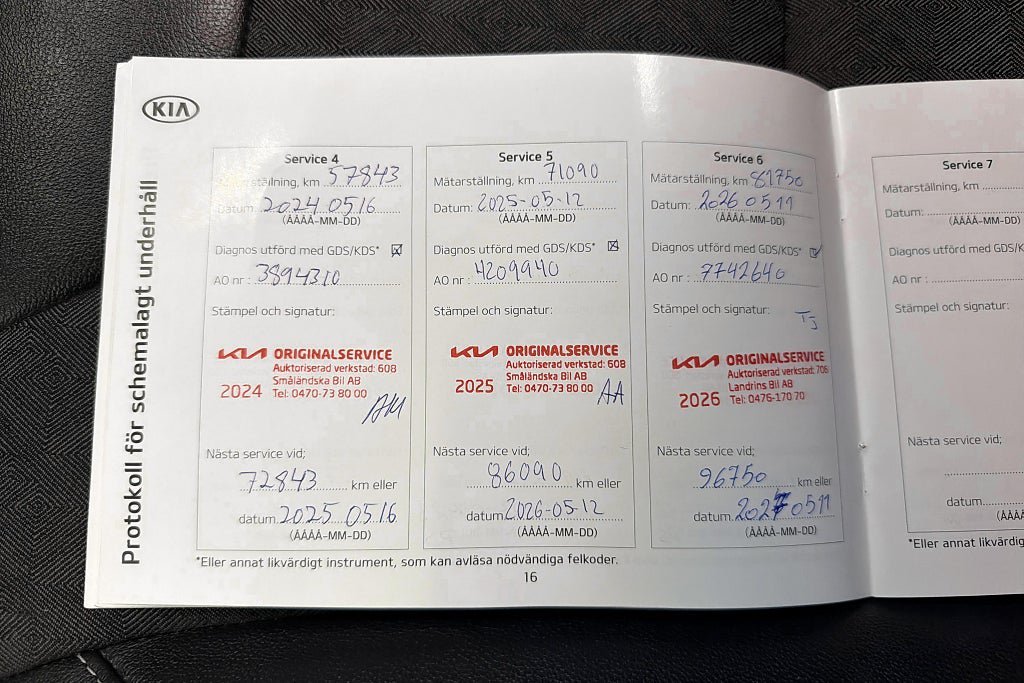 KIA
Protokoll för schemalagt underhåll
Service 4
Mätarställning, km 57843
Datum: 2024 05 16
(ÅÅÅÅ-MM-DD)
Diagnos utförd med GDS/KDS*
AO nr : 3894310
Stämpel och signatur:
KIA ORIGINALSERVICE
Auktoriserad verkstad: 608
Småländska Bil AB
2024 Tel: 0470-73 80 00
Nästa service vid;
72843 km eller
datum 2025 05 16
(ÅÅÅÅ-MM-DD)
Service 5
Mätarställning, km 71090
Datum: 2025-05-12
(ÅÅÅÅ-MM-DD)
Diagnos utförd med GDS/KDS*
AO nr : 4209940
Stämpel och signatur:
KIA ORIGINALSERVICE
Auktoriserad verkstad: 608
Småländska Bil AB
2025 Tel: 0470-73 80 00
AA
Nästa service vid;
86090 km eller
datum 2026-05-12
(ÅÅÅÅ-MM-DD)
Service 6
Mätarställning, km 81750
Datum: 2026 05 11
(ÅÅÅÅ-MM-DD)
Diagnos utförd med GDS/KDS*
AO nr : 7742640
Stämpel och signatur:
TJ
KIA ORIGINALSERVICE
Auktoriserad verkstad: 706
Landrins Bil AB
2026 Tel: 0476-170 70
Nästa service vid;
96750 km eller
datum 2027 05 11
(ÅÅÅÅ-MM-DD)
*Eller annat likvärdigt instrument, som kan avläsa nödvändiga felkoder.
16
Service 7
Mätarställning, km
Datum:
(ÅÅÅÅ-MM-DD)
Diagnos utförd med GDS/K
AO nr :
Stämpel och signatur:
Nästa service vid;
datum
(ÅÅÅ
*Eller annat likvärdig